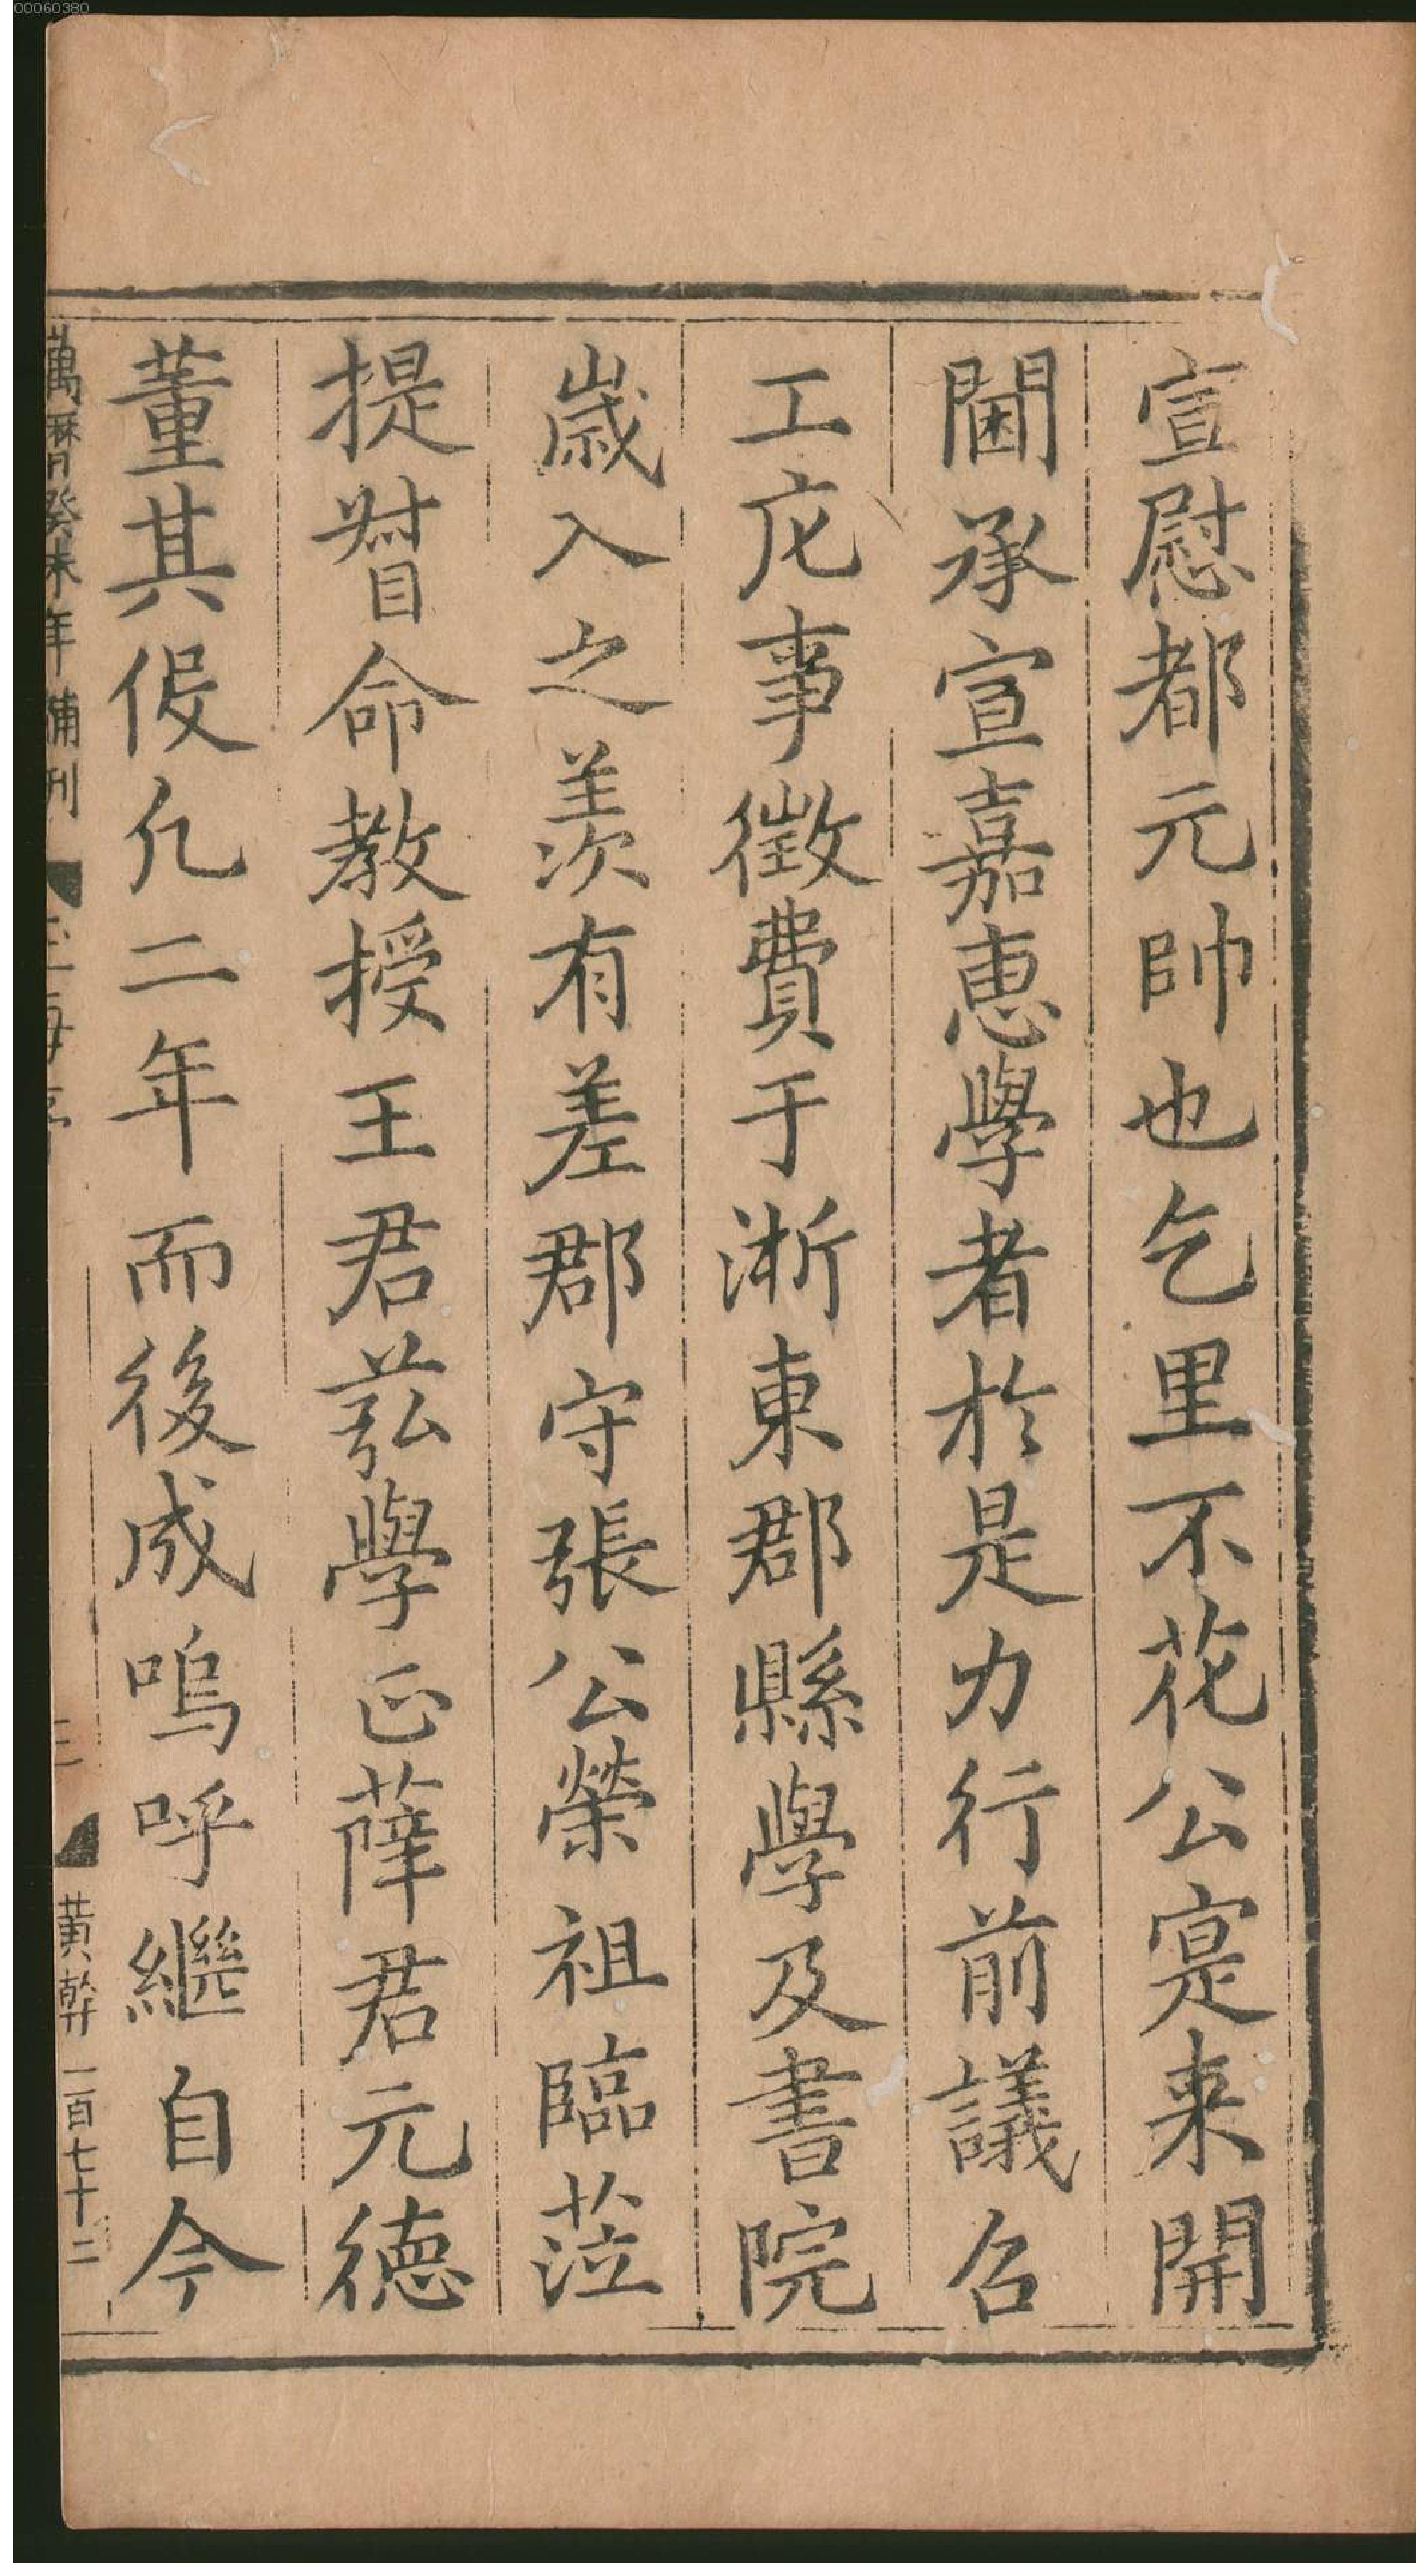 00060380
宣慰都元帥也乞里不花公寔来開
閫承宣嘉惠學者於是力行前議召
工庀事徵費于淛東郡縣學及書院
歲入之羨有差郡守張公榮祖臨蒞
提督命教授王君苰學正薛君元德
董其役凢二年而後成嗚呼繼自今
萬曆癸未年補刊 玉海序 三 黃幹 一百七十二